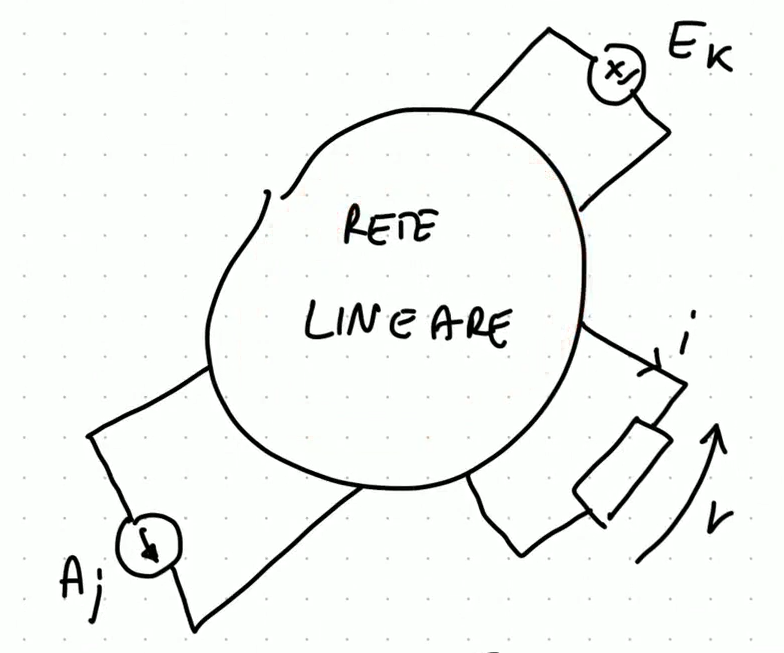 E K
RETE
LINEARE
i
v
A j